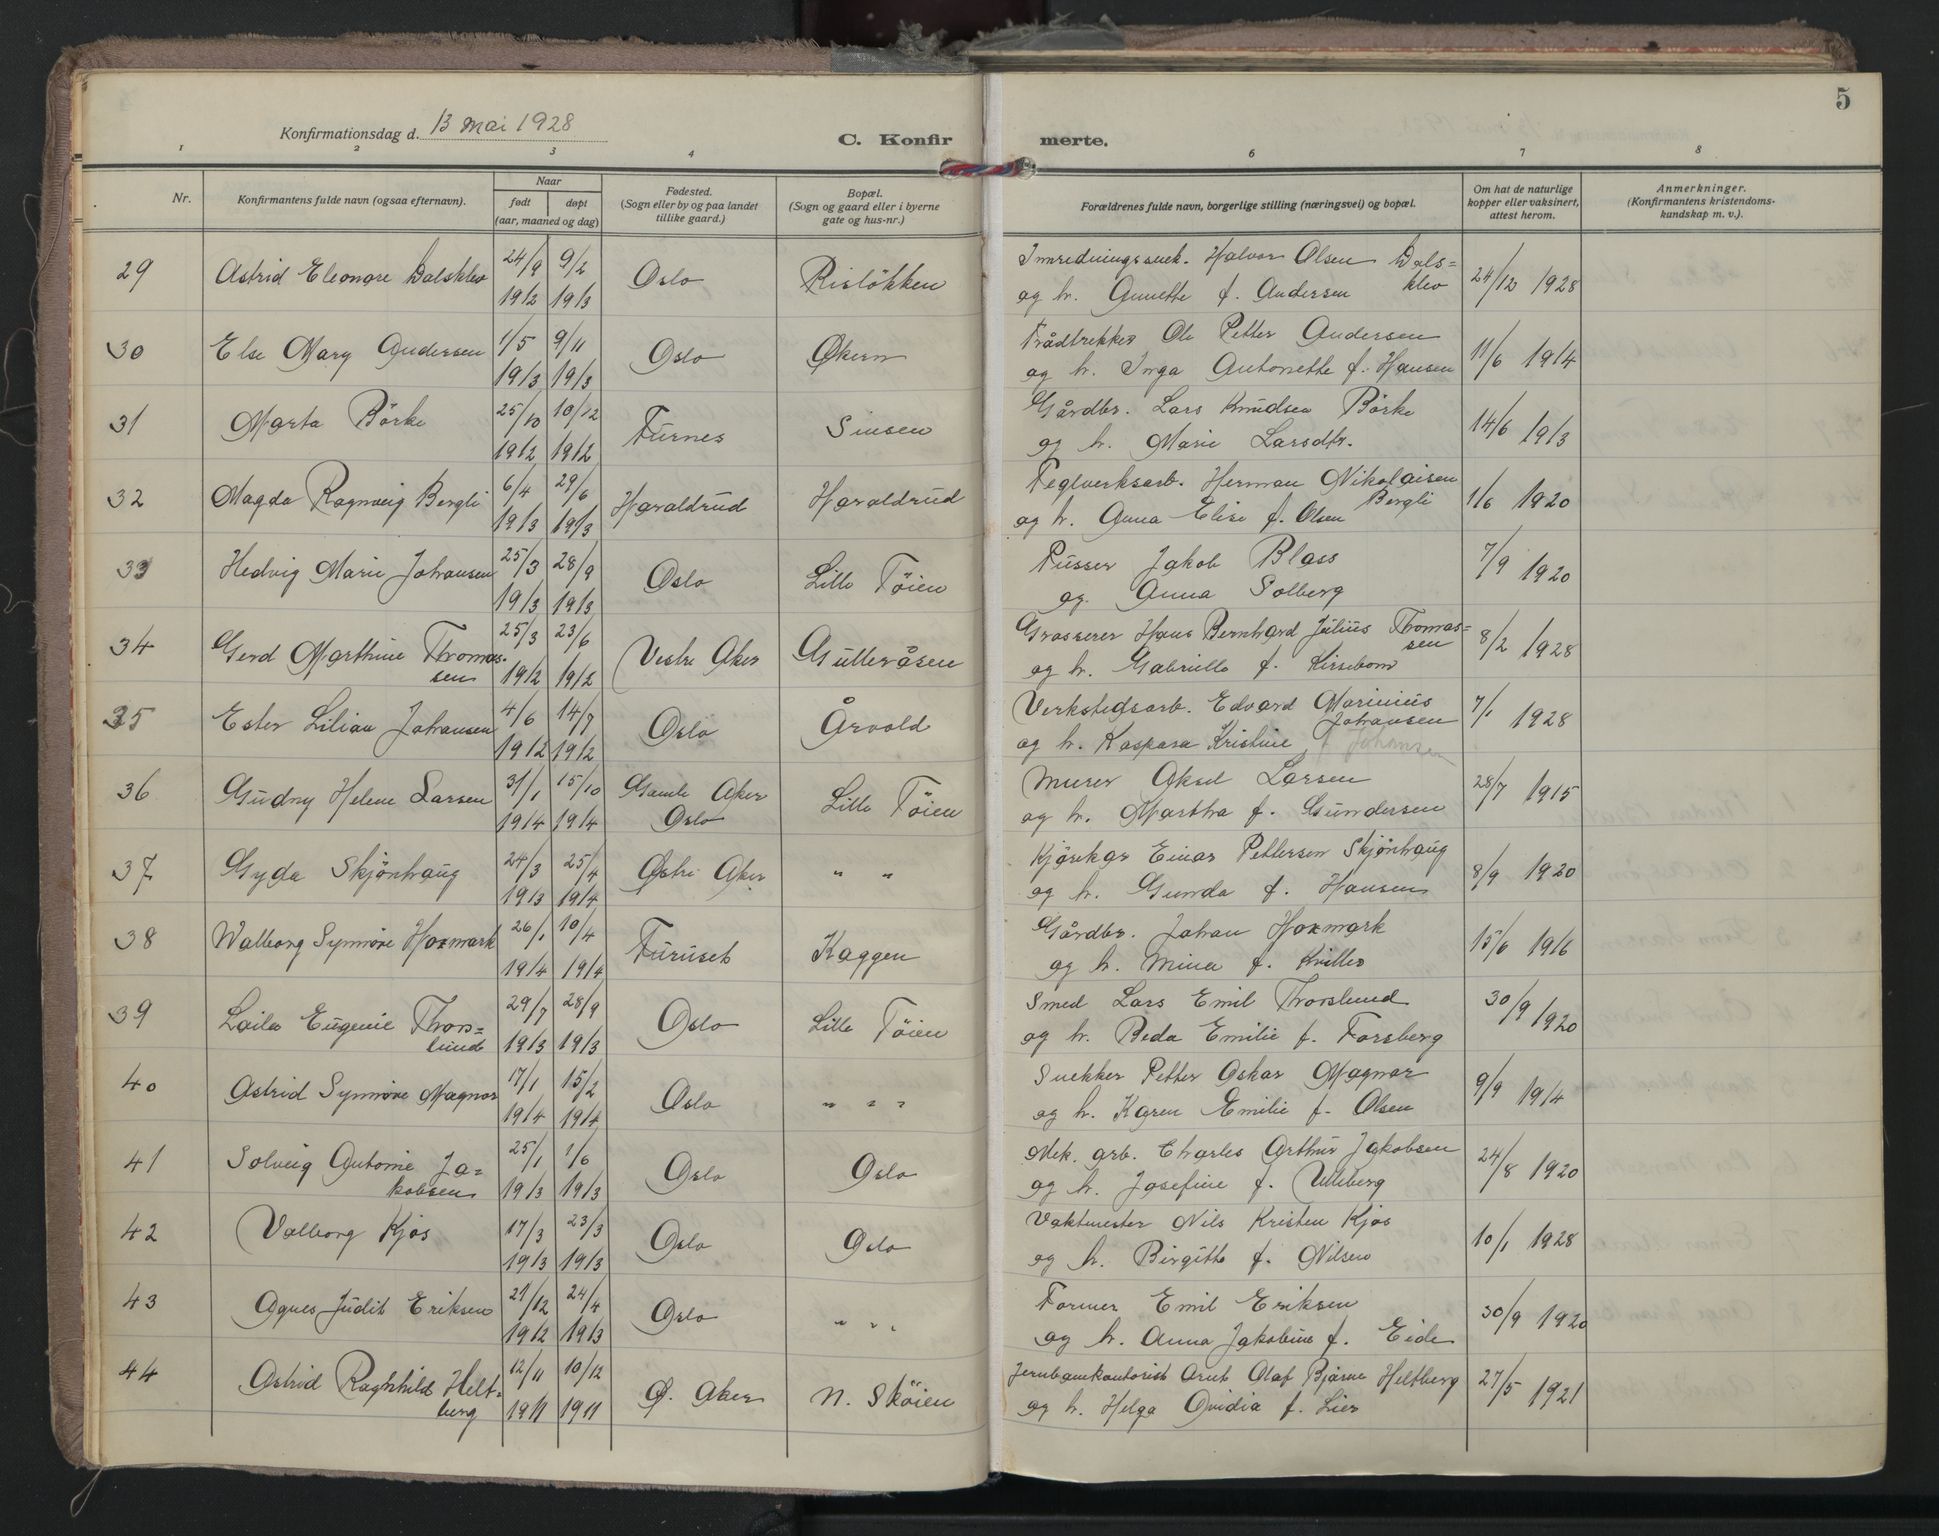 5
Konfirmationsdag d. 13 Mai 1928
C. Konfir merte.
1 2 3 4 6 7 8
Nr.
Konfirmantens fulde navn (ogsaa efternavn).
Naar
født døpt
(aar, maaned og dag)
Fødested.
(Sogn eller by og paa landet
tillike gaard.)
Bopæl.
(Sogn og gaard eller i byerne
gate og hus-nr.)
Forældrenes fulde navn, borgerlige stilling (næringsvei) og bopæl.
Om hat de naturlige
kopper eller vaksinert,
attest herom.
Anmerkninger.
(Konfirmantens kristendoms-
kundskap m. v.).
29 Astrid Eleonore Dalsklev 24/9 1912 9/2 1913 Oslo Risløkken Innredningssnek. Halvor Olsen Dals=
klev
og h. Annette f. Andersen 24/12 1928
30 Else Mary Andersen 1/5 1913 9/11 1913 Oslo Økern Trådtrekker Ole Petter Andersen
og h. Inga Antonette f. Hansen 11/6 1914
31 Marta Börke 25/10 1912 10/12 1912 Furnes Sinsen Gårdbr. Lars Knudsen Börke
og h. Marie Larsdtr. 14/6 1913
32 Magda Ragnveig Bergli 6/4 1913 29/6 1913 Haraldrud Haraldrud Teglverksarb. Herman Nikolaisen
Bergli
og h. Anna Elise f. Olsen 1/6 1920
33 Hedvig Marie Johansen 25/3 1913 28/9 1913 Oslo Lille Töien Pusser Jakob Blass
og Anna Solberg 7/9 1920
34 Gerd Marthine Thomas-
sen 25/3 1912 23/6 1912 Vestre Aker Gulleråsen Grosserer Hans Bernhard Julius Thomas=
sen
og h. Gabrielle f. Kirsebom 8/2 1928
35 Ester Lilian Johansen 4/6 1912 14/7 1912 Oslo Årvold Verkstedsarb. Edvard Marinius
Johansen
og h. Kaspara Kristine f Johansen 7/1 1928
36 Gudny Helene Larsen 31/1 1914 15/10 1914 Gamle Aker
Oslo Lille Töien Murer Aksel Larsen
og h. Martha f. Gundersen 28/7 1915
37 Gyda Skjönhaug 24/3 1913 25/4 1914 Østre Aker " " Kjörekar Einar Pettersen Skjönhaug
og h. Gunda f. Hansen 8/9 1920
38 Walborg Synnöve Hoxmark 26/1 1914 10/4 1914 Furuset Kaggen Gårdbr. Johan Hoxmark
og h. Mina f. Kviller 15/6 1916
39 Laila Eugenie Thors=
lund 29/7 1913 28/9 1913 Oslo Lille Töien Smed Lars Emil Thorslund
og h. Beda Emilie f. Forsberg 30/9 1920
40 Astrid Synnöve Magnor 17/1 1914 15/2 1914 Oslo " " " Snekker Petter Oskar Magnor
og h. Karen Emilie f. Olsen 9/9 1914
41 Solveig Antonie Ja=
kobsen 25/1 1913 1/6 1913 Oslo Oslo Mek. arb. Charles Arthur Jakobsen
og h. Josefine f. Ulleberg 24/8 1920
42 Valborg Kjos 17/3 1913 23/3 1913 Oslo Oslo Vaktmester Nils Kristen Kjos
og h. Birgitte f. Nilsen 10/1 1928
43 Agnes Judit Eriksen 21/12 1912 24/4 1913 Oslo " " " Former Emil Eriksen
og h. Anna Jakobine f. Eide 30/9 1920
44 Astrid Raghhild Helt-
berg 12/11 1911 10/12 1911 Ø. Aker N. Sköien Jernbanekontorist Arnt Olaf Bjarne Heltberg
og h. Helga Ovidia f. Lier 27/5 1921